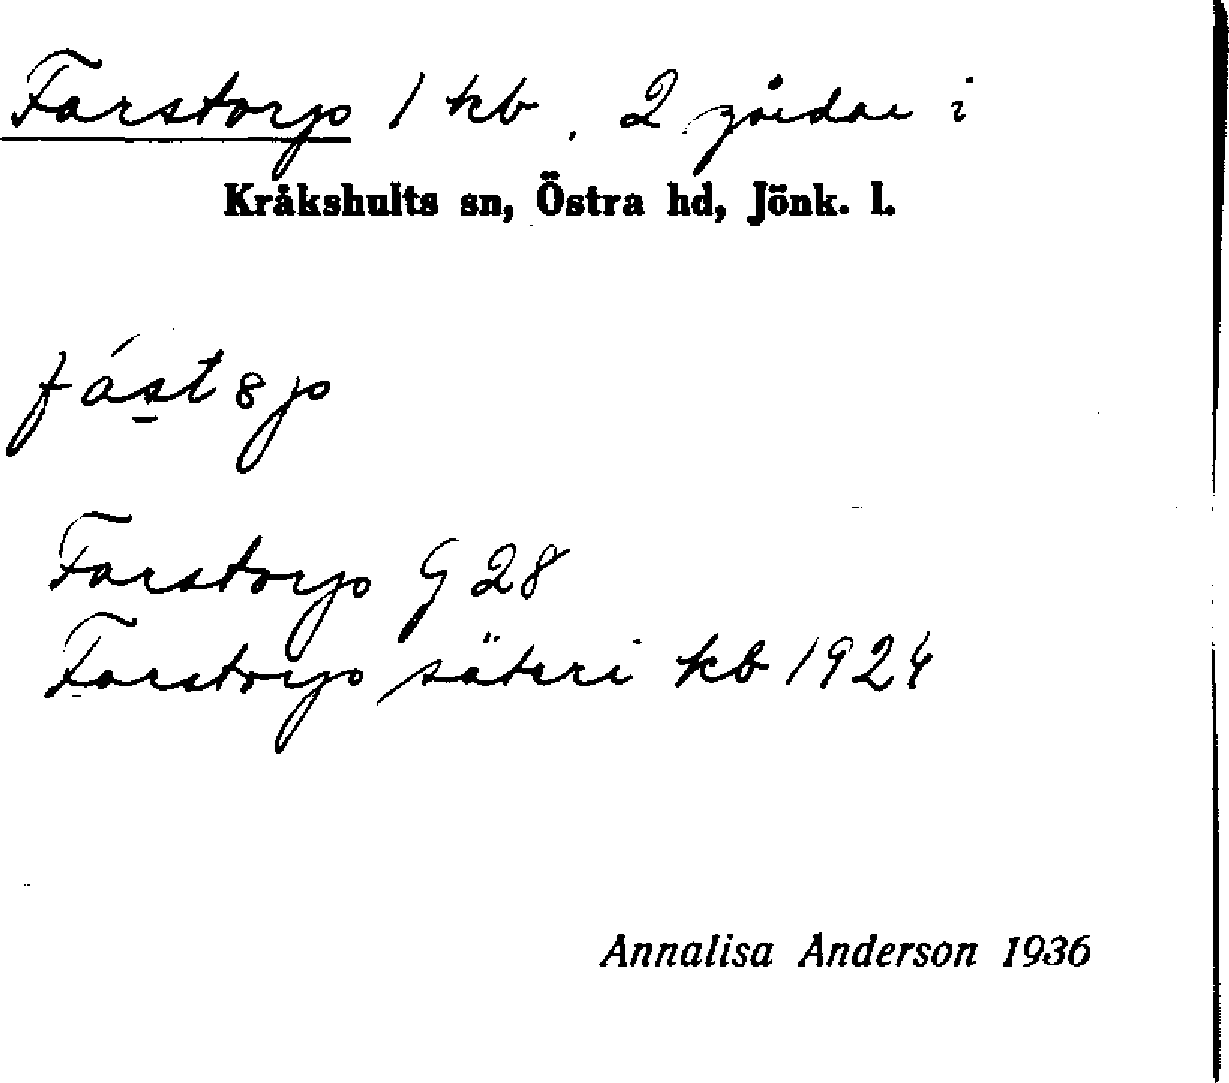 Farstorp 1 kb, 2 gårdar i
Kråkshults sn, Östra hd, Jönk. l.
fás̠t8p
Farstorp G 28
Farstorp säteri kb 1924
Annalisa Anderson 1936